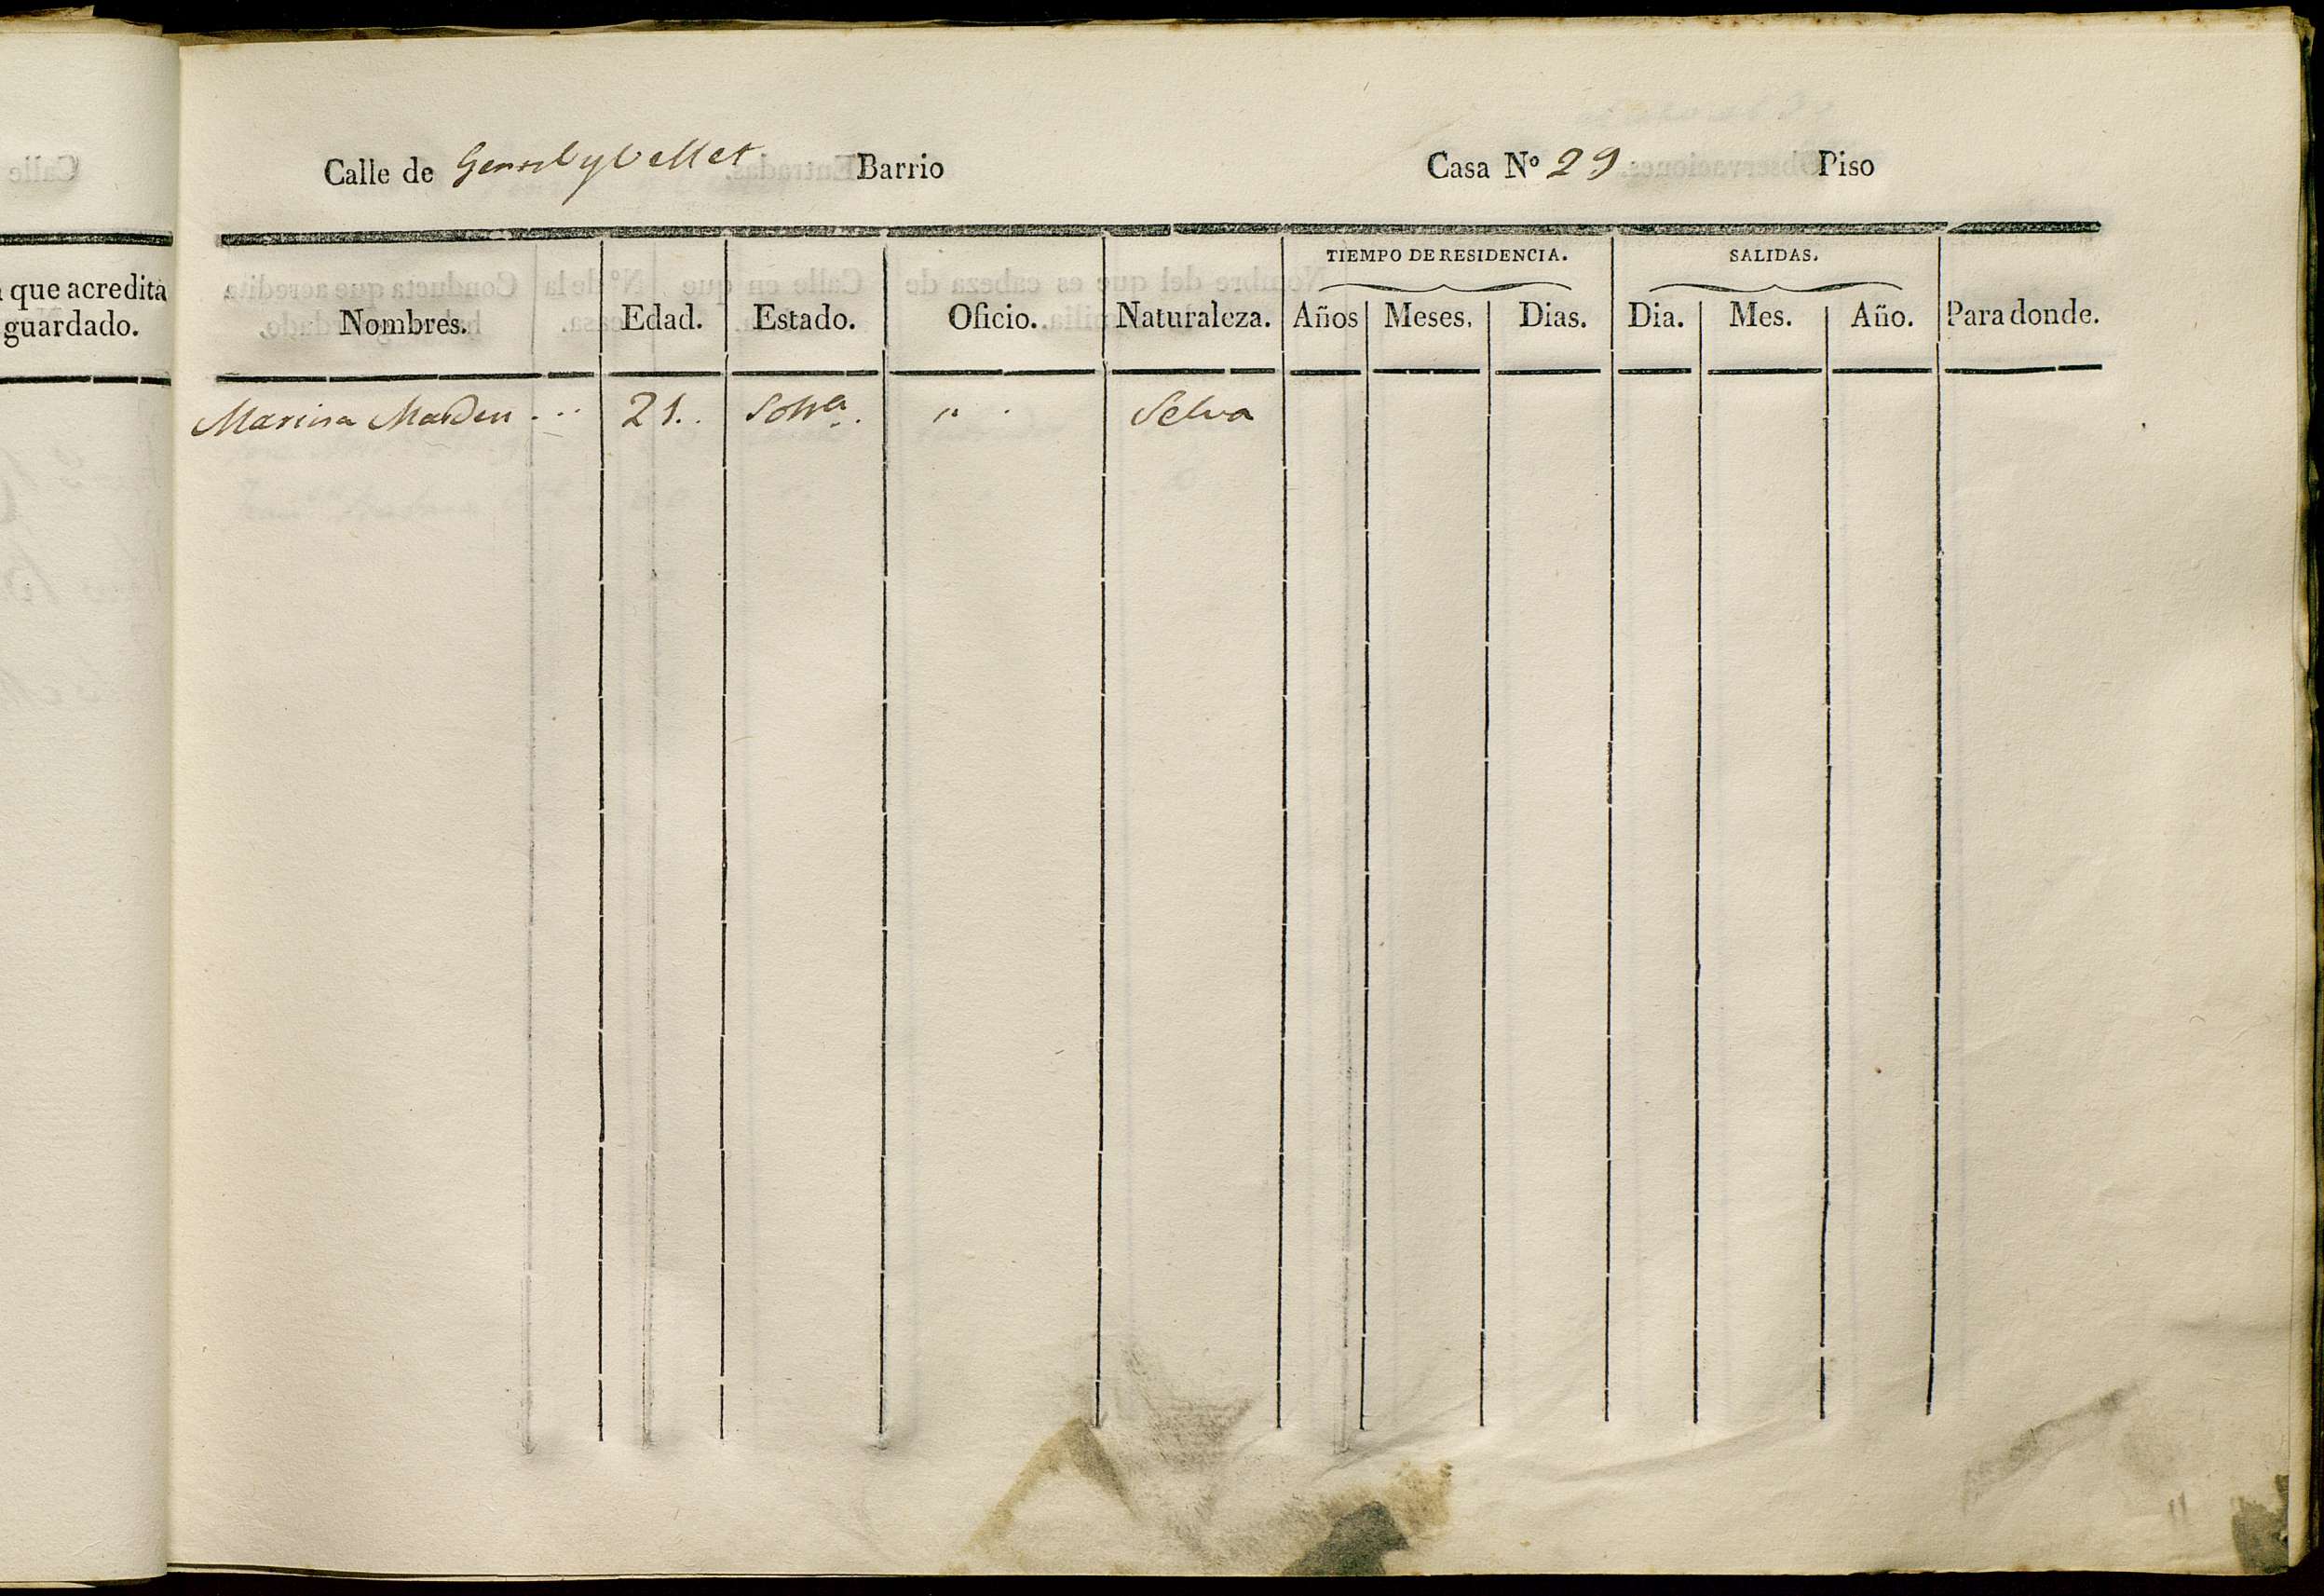 que acredita
guardado.
Calle de Barrio Casa Nº 29 Piso
TIEMPO DE RESIDENCIA. SALIDAS.
Nombres. Edad. Estado. Oficio. Naturaleza. Años Meses. Dias. Dia. Mes. Año. Para donde.
Marina ... 21.. Solt.ª. " . Selva